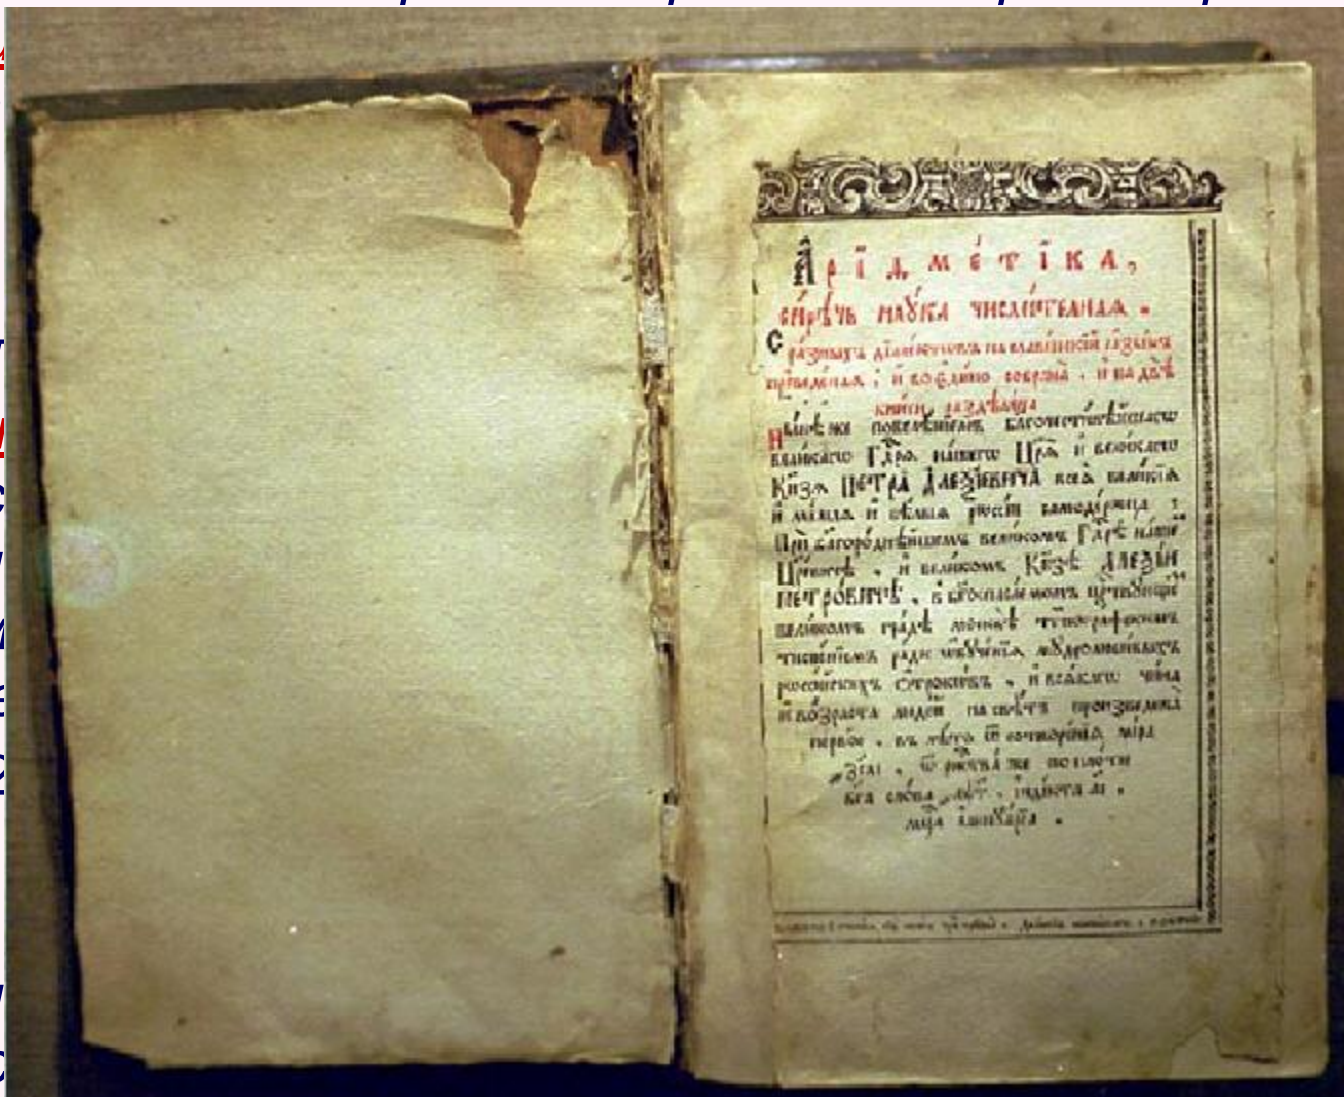 Арїѳме́тїка,
си́рѣчь наꙋ́ка числи́телнаѧ.
С ра́зныхъ дїале́ктѡвъ на славе́нскїй ꙗ҆зы́къ
преведе́наѧ, и҆ во є҆ди́но собрана̀, и҆ на двѣ̀
кни́ги раздѣлена̀
Нн҃ѣ же повелѣ́нїемъ благочести́вѣйшагѡ
вели́кагѡ Гдⷭ҇рѧ на́шегѡ Цр҃ѧ̀ и҆ вели́кагѡ
Кнѧ́зѧ ПЕТРА̀ А҆ЛЕѮІ́ЕВИЧА всеѧ̀ вели́кїѧ
и҆ ма́лыѧ и҆ бѣ́лыѧ рѡссі́и самоде́ржца:
Прѝ благоро́днѣйшемъ вели́комъ Гдⷭ҇рѣ на́шемъ
Цр҃е́вичѣ, и҆ вели́комъ Кн҃зѣ А҆ЛЕѮІ́И
ПЕТРО́ВИЧѢ, в бг҃оспаса́емомъ црⷭ҇твꙋющемъ
вели́комъ гра́дѣ москвѣ̀ тѷпогра́фскимъ
тисне́нїемъ ра́ди ѡ҆бꙋче́нїѧ мꙋдролюби́выхъ
рѡссі́йскихъ ѻ҆́трокѡвъ, и҆ всѧ́кагѡ чи́на
и҆ во́зраста люде́й на свѣ́тъ произведена̀
пе́рвое, въ лѣ́то ѿ сотворе́нїѧ мі́ра
҂зсаі, ѿ ржⷭ҇тва̀ же по пло́ти
бг҃а сло́ва ҂аѱг, і҆ндї́кта аі,
мцⷭ҇а і҆аннꙋа́рїа.